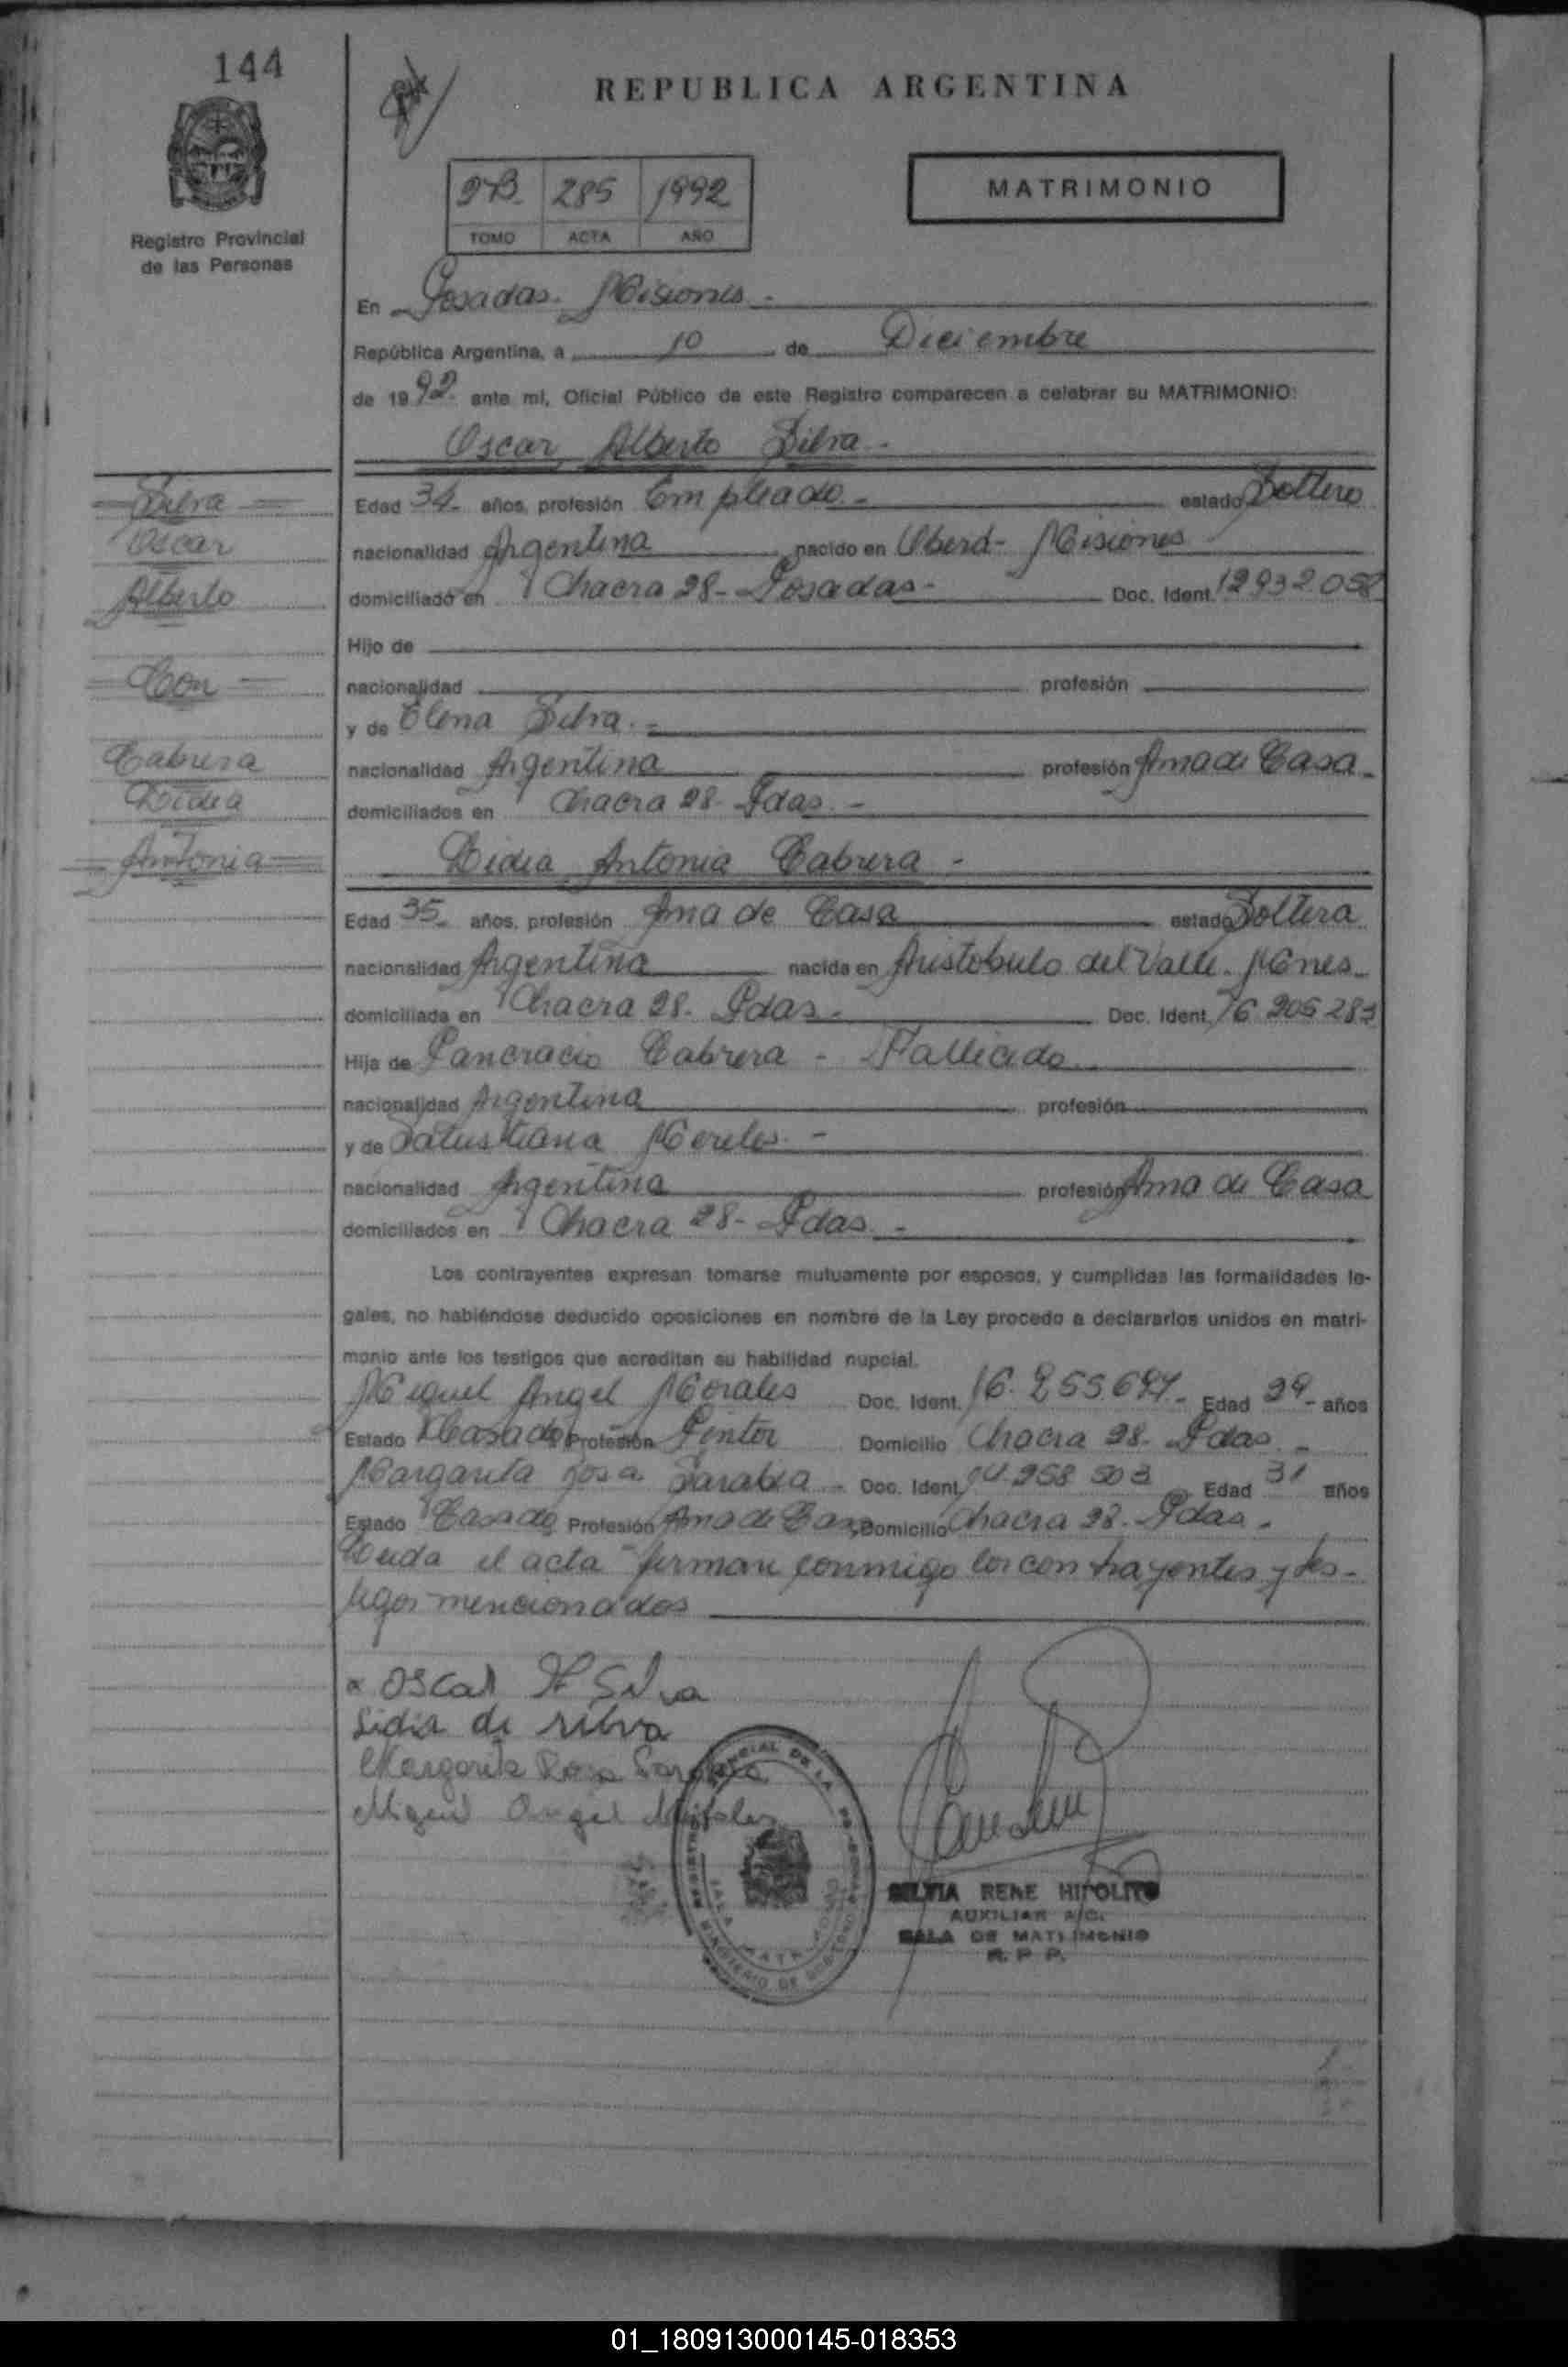 144
REPUBLICA ARGENTINA
285 1992
TOMO ACTA AÑO
MATRIMONIO
Registro Provincial
de las Personas
En Posadas. Misiones -
República Argentina, a 10 de Diciembre
de 1992 ante mí, Oficial Público de este Registro comparecen a celebrar su MATRIMONIO:
Oscar Alberto Silva -
Silva
Oscar
Alberto
Con
Cabrera
Lidia
Antonia
Edad 34 años, profesión Empleado - estado Soltero
nacionalidad Argentina nacido en Oberá - Misiones
domiciliado en Chacra 28 - Posadas - Doc. Ident. 12932058
Hijo de
nacionalidad profesión
y de Elena Silva. -
nacionalidad Argentina profesión Ama de Casa -
domiciliados en Chacra 28 - Pdas. -
Lidia Antonia Cabrera -
Edad 35 años, profesión Ama de Casa estado Soltera
nacionalidad Argentina nacida en Aristobulo del Valle - Mnes -
domiciliada en Chacra 28 - Pdas - Doc. Ident. 16 205 283
Hija de Pancracio Cabrera - Fallecido
nacionalidad Argentina profesión
y de Salustiana Mereles -
nacionalidad Argentina profesión Ama de Casa
domiciliados en Chacra 28 - Pdas -
Los contrayentes expresan tomarse mutuamente por esposos, y cumplidas las formalidades le-
gales, no habiéndose deducido oposiciones en nombre de la Ley procedo a declararlos unidos en matri-
monio ante los testigos que acreditan su habilidad nupcial.
Miguel Angel Morales Doc. Ident. Edad 29 - años
Estado Casado Profesión Pintor Domicilio Chacra 28 - Pdas -
Margarita Rosa Sarabia - Doc. Ident. 14.958 503 Edad 31 años
Estado Casada Profesión Ama de Casa Domicilio Chacra 28 - Pdas -
Leida el acta firman conmigo los contrayentes y tes-
tigos mencionados
x Oscar A Silva
Lidia de silva
Margarita Rosa Sarabia
Miguel Angel Morales
SILVIA RENE HIPOLITO
AUXILIAR A/C.
SALA DE MATRIMONIO
R. P. P.
01_180913000145-018353